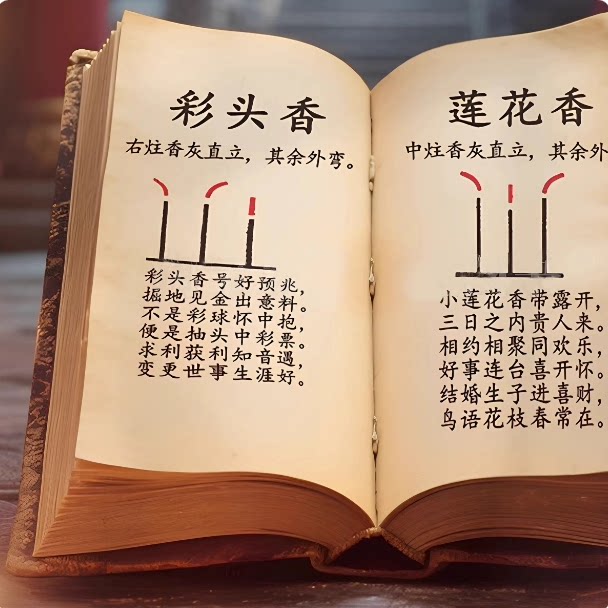 彩头香
右炷香灰直立，其余外弯。
彩头香号好预兆，
掘地见金出意料。
不是彩球怀中抱，
便是抽头中彩票。
求利获利知音遇，
变更世事生涯好。
莲花香
中炷香灰直立，其余外
小莲花香带露开，
三日之内贵人来。
相约相聚同欢乐，
好事连台喜开怀。
结婚生子进喜财，
鸟语花枝春常在。